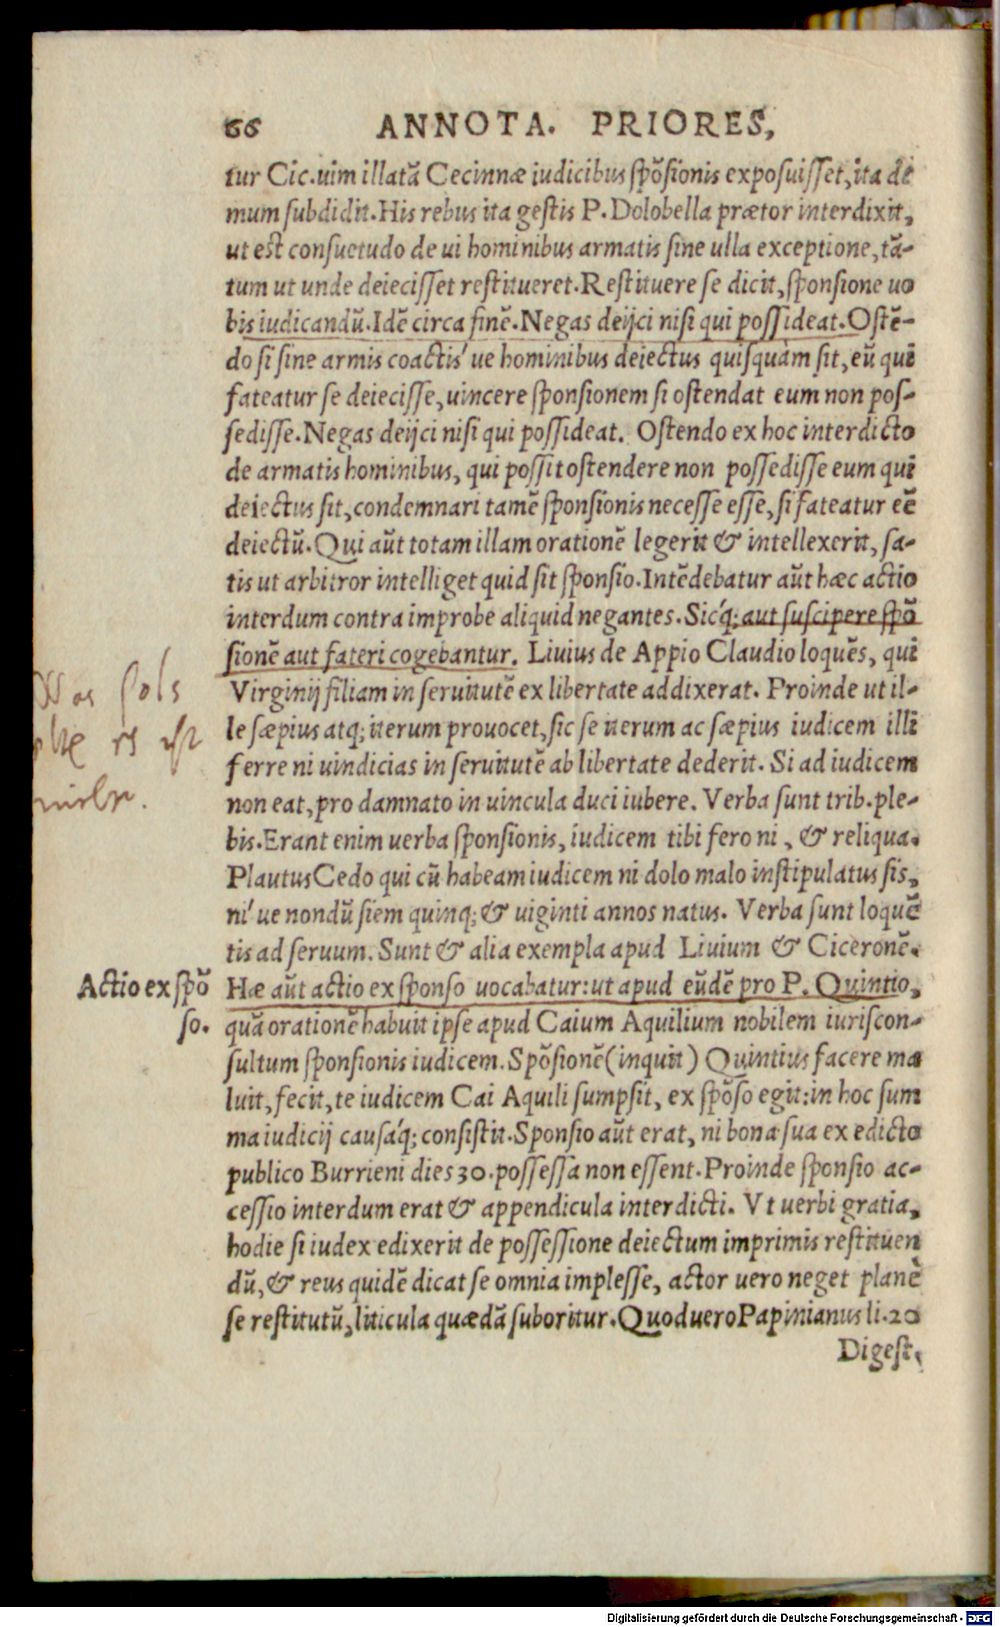 66 ANNOTA. PRIORES,
tur Cic. uim illatã Cecinnæ iudicibus spõsionis exposuisset, ita de
mum subdidit. His rebus ita gestis P. Dolobella prætor interdixit,
ut est consuetudo de ui hominibus armatis sine ulla exceptione, tã-
tum ut unde deiecisset restitueret. Restituere se dicit, sponsione uo
bis iudicandũ. Idẽ circa finẽ. Negas deijci nisi qui possideat. Ostẽ-
do si sine armis coactis' ue hominibus deiectus quisquàm sit, eũ qui
fateatur se deiecisse, uincere sponsionem si ostendat eum non pos-
sedisse. Negas deijci nisi qui possideat. Ostendo ex hoc interdicto
de armatis hominibus, qui possit ostendere non possedisse eum qui
deiectus sit, condemnari tamẽ sponsionis necesse esse, si fateatur eẽ
deiectũ. Qui aũt totam illam orationẽ legerit & intellexerit, sa-
tis ut arbitror intelliget quid sit sponsio. Intẽdebatur aũt hæc actio
interdum contra improbe aliquid negantes. Sic'q; aut suscipere spõ
sionẽ aut fateri cogebantur. Liuius de Appio Claudio loquẽs, qui
Virginij filiam in seruitutẽ ex libertate addixerat. Proinde ut il-
le sæpius atq; iterum prouocet, sic se iterum ac sæpius iudicem illi
ferre ni uindicias in seruitutẽ ab libertate dederit. Si ad iudicem
non eat, pro damnato in uincula duci iubere. Verba sunt trib. ple-
bis. Erant enim uerba sponsionis, iudicem tibi fero ni, & reliqua.
Plautus Cedo qui cũ habeam iudicem ni dolo malo instipulatus sis,
ni' ue nondũ siem quinq; & uiginti annos natus. Verba sunt loquẽ
tis ad seruum. Sunt & alia exempla apud Liuium & Ciceronẽ.
Actio ex spõ
so.
Hæ aũt actio ex sponso uocabatur: ut apud eũdẽ pro P. Quintio,
quã orationẽ habuit ipse apud Caium Aquilium nobilem iuriscon-
sultum sponsionis iudicem. Spõsionẽ (inquit) Quintius facere ma
luit, fecit, te iudicem Cai Aquili sumpsit, ex spõso egit: in hoc sum
ma iudicij causá'q; consistit. Sponsio aũt erat, ni bona sua ex edicto
publico Burrieni dies 30. possessa non essent. Proinde sponsio ac-
cessio interdum erat & appendicula interdicti. Vt uerbi gratia,
hodie si iudex edixerit de possessione deiectum imprimis restituen
dũ, & reus quidẽ dicat se omnia implesse, actor uero neget planè
se restitutũ, liticula quædã suboritur. Quod uero Papinianus li. 20
Digest.